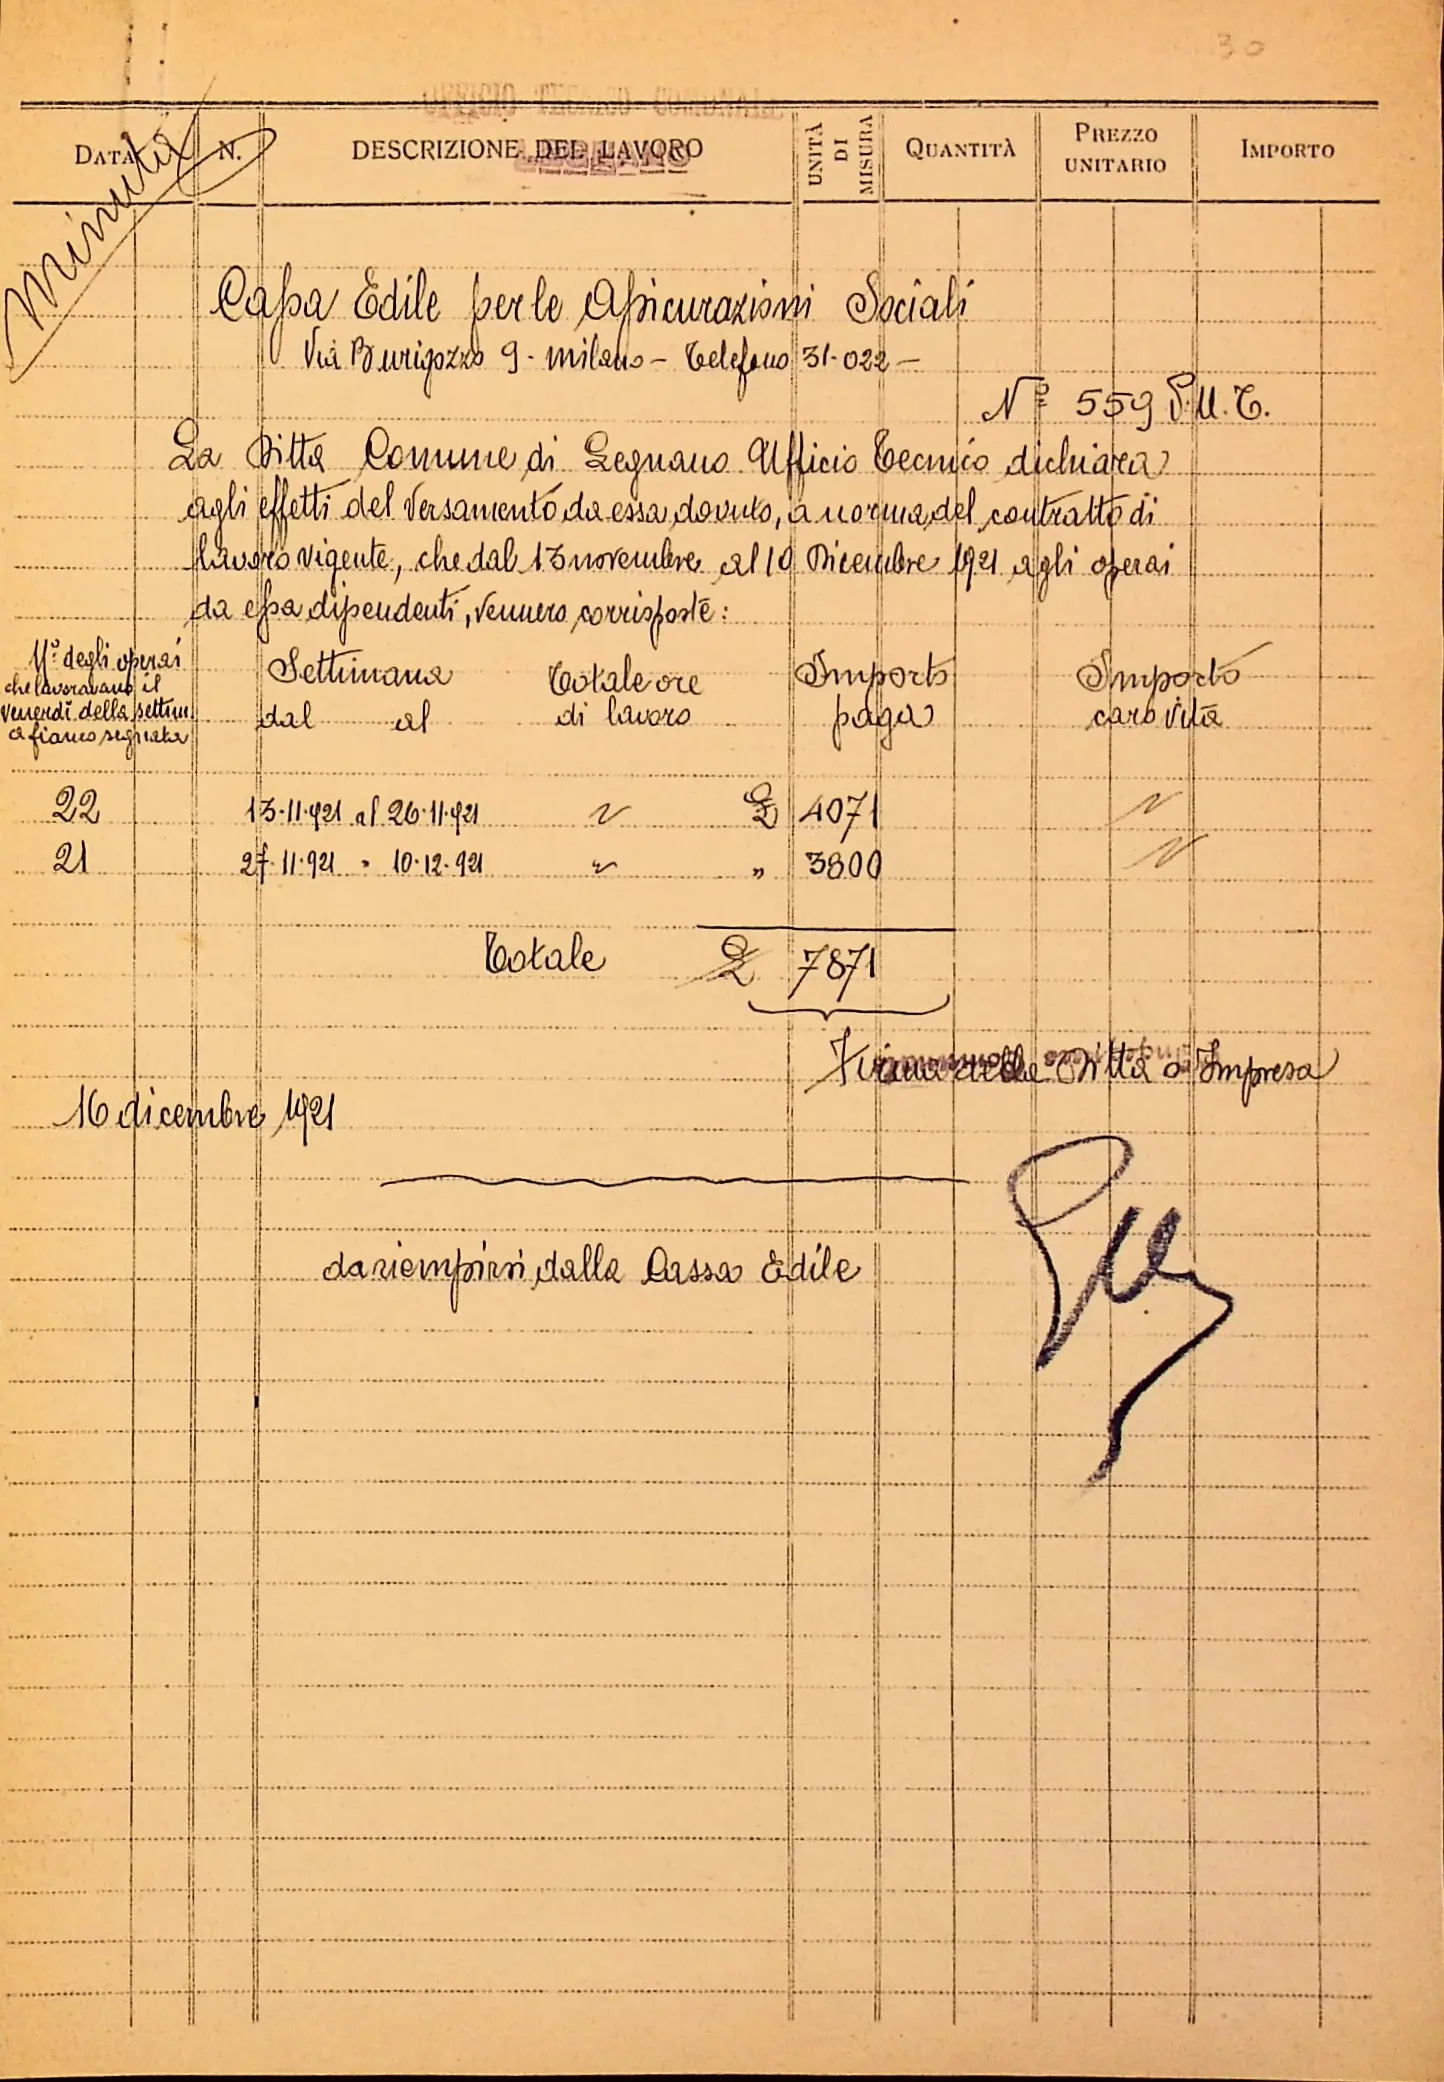 30
UFFICIO TECNICO COMUNALE
LEGNANO
DATA N. DESCRIZIONE DEL LAVORO UNITÀ DI MISURA QUANTITÀ PREZZO UNITARIO IMPORTO
Minuta
Cassa Edile per le Assicurazioni Sociali
Via Burigozzo 9 - Milano - Telefono 31-022 -
Nº 559 P.U.T.
La Ditta Comune di Legnano Ufficio Tecnico dichiara
agli effetti del versamento da essa dovuto, a norma del contratto di
lavoro vigente, che dal 13 novembre al 10 Dicembre 1921 agli operai
da essa dipendenti, vennero corrisposte:
Nº degli operai
che lavoravano il
venerdì della settim.
a fianco segnata
Settimana
dal al
Totale ore
di lavoro
Importo
paga
Importo
caro vita
22 13-11-921 al 26-11-921 " £ 4071 "
21 27-11-921 " 10-12-921 " " 3800 "
Totale £ 7871
Firma della Ditta o Impresa
16 dicembre 1921
da riempirsi dalla Cassa Edile